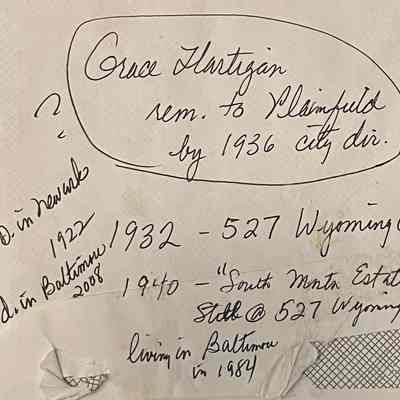 Grace Hartigan
rem. to Plainfield
by 1936 city dir.
?
B. in Newark
1922
d. in Baltimore
2008
1932 - 527 Wyoming
1940 - "South Mntn Estat
Still @ 527 Wyoming
living in Baltimore
in 1984